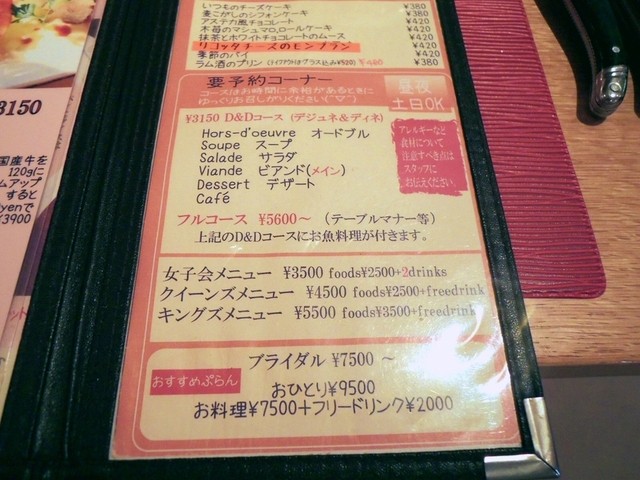 いつものチーズケーキ ¥380
麦こがしのシフォンケーキ ¥380
アステカ風チョコレート ¥420
木苺のマシュマロ,ロールケーキ ¥420
抹茶とホワイトチョコレートのムース ¥420
リコッタチーズのモンブラン ¥420
季節のパイ ¥420
ラム酒のプリン (テイクアウトはグラス込み¥520) ¥380
要予約コーナー
コースはお時間に余裕があるときに
ゆっくりお召しがりください(°▽°)
昼夜
土日OK
¥3150 D&Dコース (デジュネ&ディネ)
Hors-d'oeuvre オードブル
Soupe スープ
Salade サラダ
Viande ビアンド(メイン)
Dessert デザート
Café
アレルギーなど
食材について
注意すべき点は
スタッフに
お伝えください。
フルコース ¥5600～ (テーブルマナー等)
上記のD&Dコースにお魚料理が付きます。
女子会メニュー ¥3500 foods¥2500+2drinks
クイーンズメニュー ¥4500 foods¥2500+freedrink
キングズメニュー ¥5500 foods¥3500+freedrink
ブライダル ¥7500 ～
おすすめぷらん
おひとり¥9500
お料理¥7500+フリードリンク¥2000
3150
国産牛を
120gに
ムアップ
すると
yenで
¥3900
ット